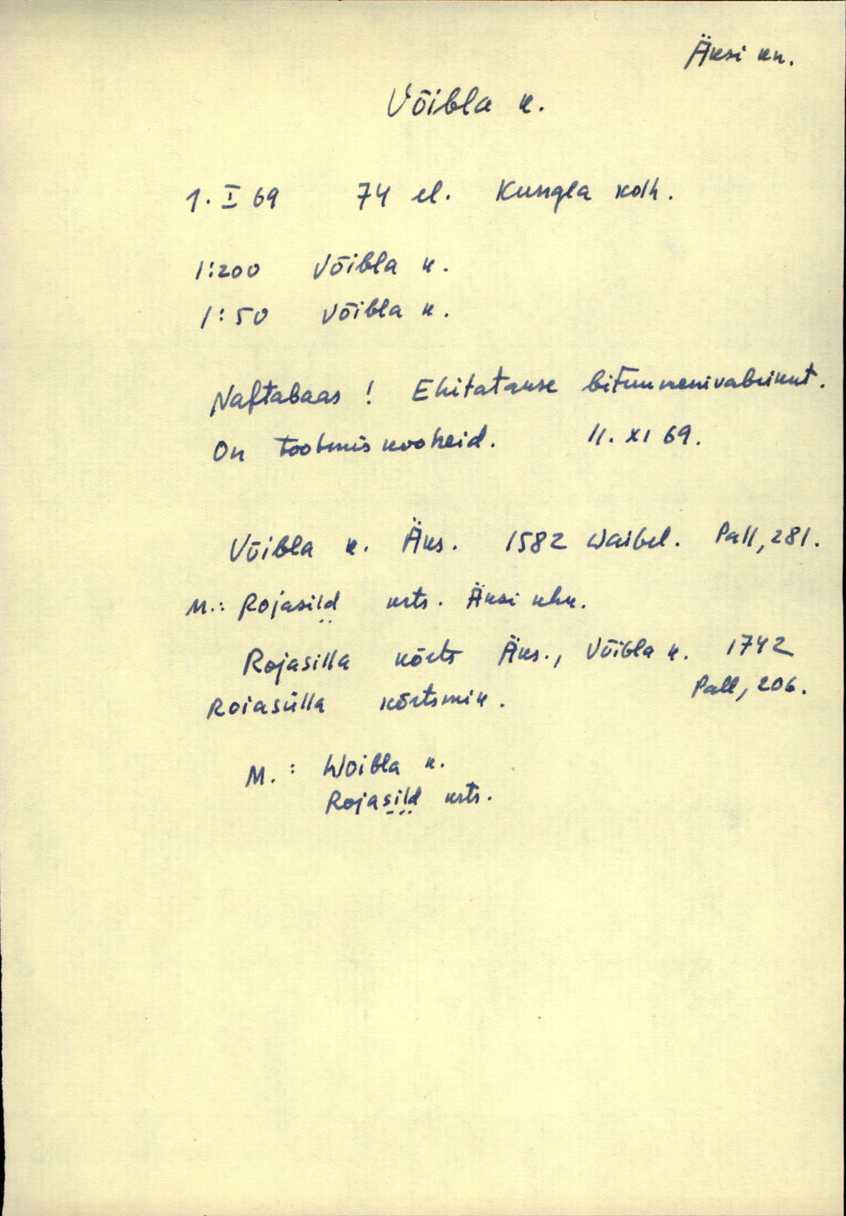 Äksi kn.
Võibla k.
1. I 69 74 el. Kungla kolh.
1:200 Võibla k.
1:50 Võibla k.
Naftabaas! Ehitatakse bituumenivabrikut.
On tootmishooneid. 11. XI 69.
Võibla k. Äks. 1582 Waibel. Pall, 281.
M.: Rojasild krts. Äksi khk.
Rojasilla kõrts Äks., Võibla k. 1742
Roiasülla kõrtsmik. Pall, 206.
M.: Woibla k.
Rojasild krts.